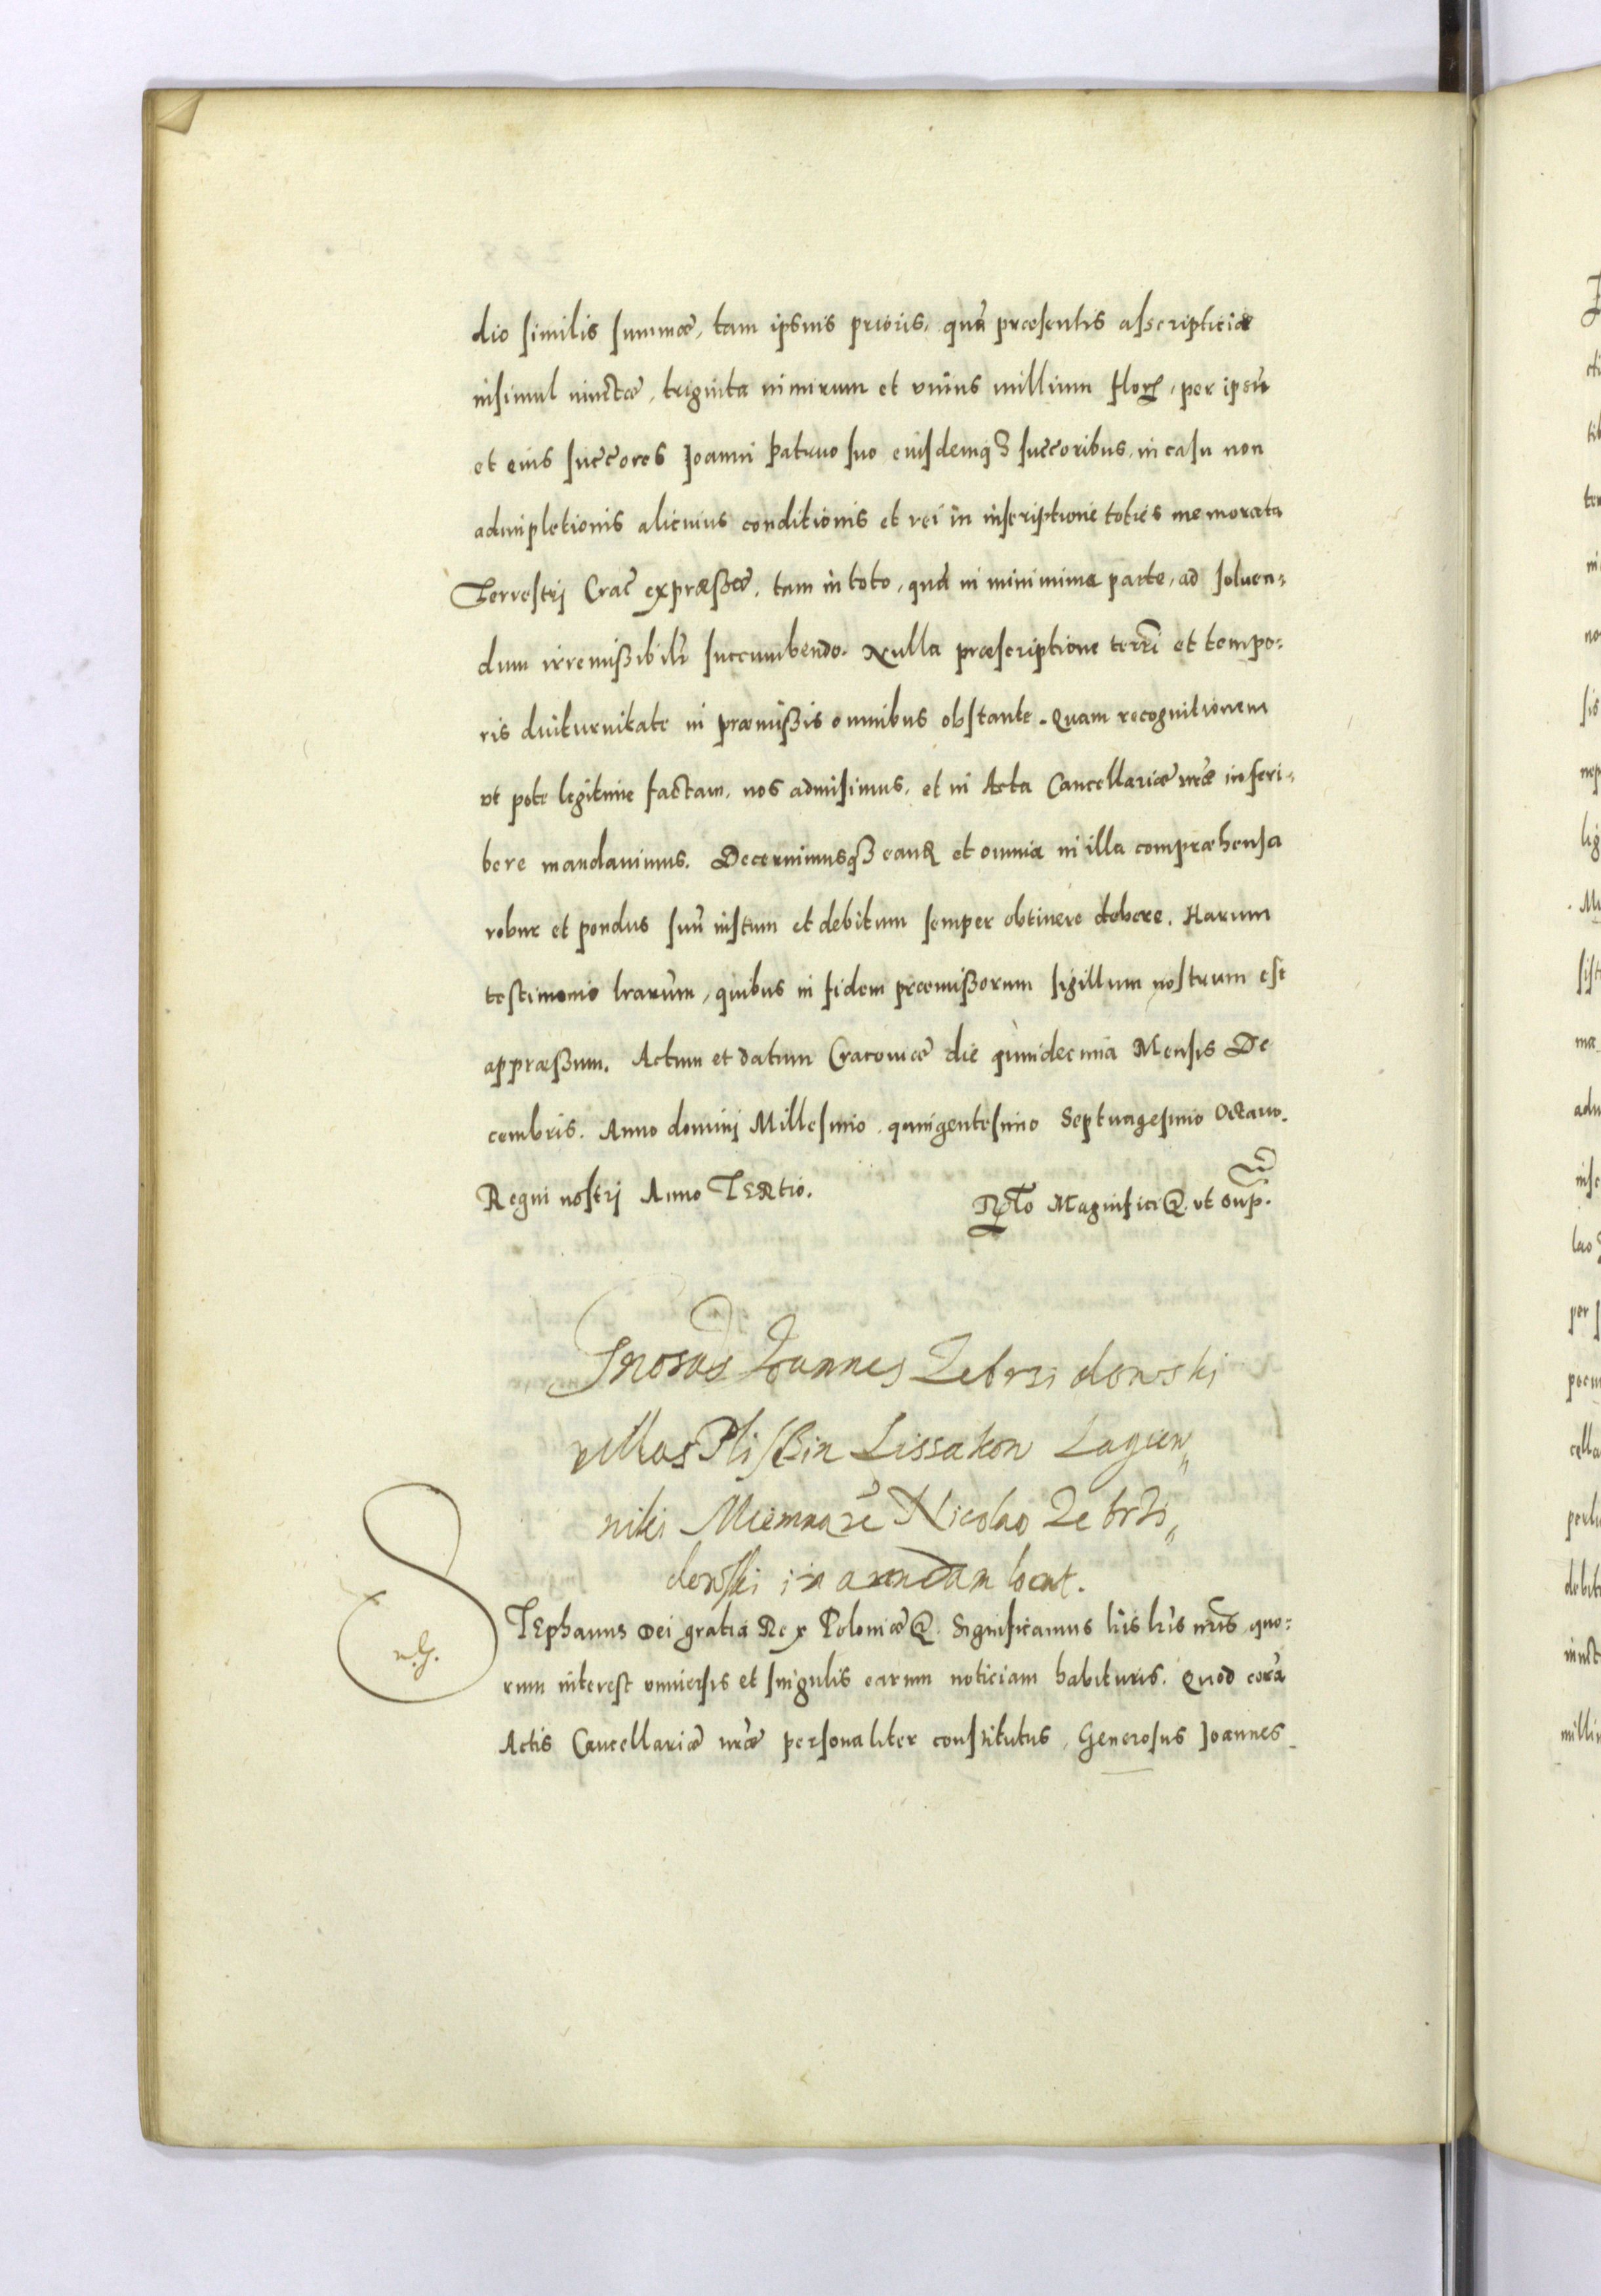 dio similis summæ, tam ipsius prioris, quã præsentis asscripticiæ
insimul iunctæ, triginta nimirum et vnius millium flor, per ipsũ
et eius succores Joanni Patruo suo eiusdemqз succoribus, in casu non
adimpletionis alicuius conditionis et rei in inscriptione toties memorata
Terrestrj Crac̃ expræssæ, tam in toto, quã in minimima parte, ad soluen=
dum irremissibilr̃ succumbendo. Nulla præscriptione terrĩ et tempo=
ris diuturnitate in præmissis omnibus obstante. Quam recognitionem
vt pote legitime factam, nos admisimus, et in Acta Cancellariæ nr̃æ inscri=
bere mandauimus. Decernimusqз eam et omnia in illa compræhensa
robur et pondus suũ iustum et debitum semper obtinere debere. Harum
testimonio lrarũm, quibus in fidem præmissorum sigillum nostrum est
appræssum. Actum et datum Cracouiæ die quindecima Mensis De
cembris. Anno dominj Millesimo quingentesimo Septuagesimo Octauo.
Regni nostrj Anno TERtio.
Rlto Magnifici &. vt sup.
Gnosus Joannes Zebrzidowski
villas Lissakow Lagiew„
niki Nicolao Zebrzi„
dowski in arendam locat.
STEphanus Dei gratia Rex Poloniæ &. Significamus his lr̃is nr̃is quo=
n. G.
rum interest vniuersis et singulis earum noticiam habituris. Quod corã
Actis Cancellariæ nr̃æ personaliter constitutus, Generosus Joannes